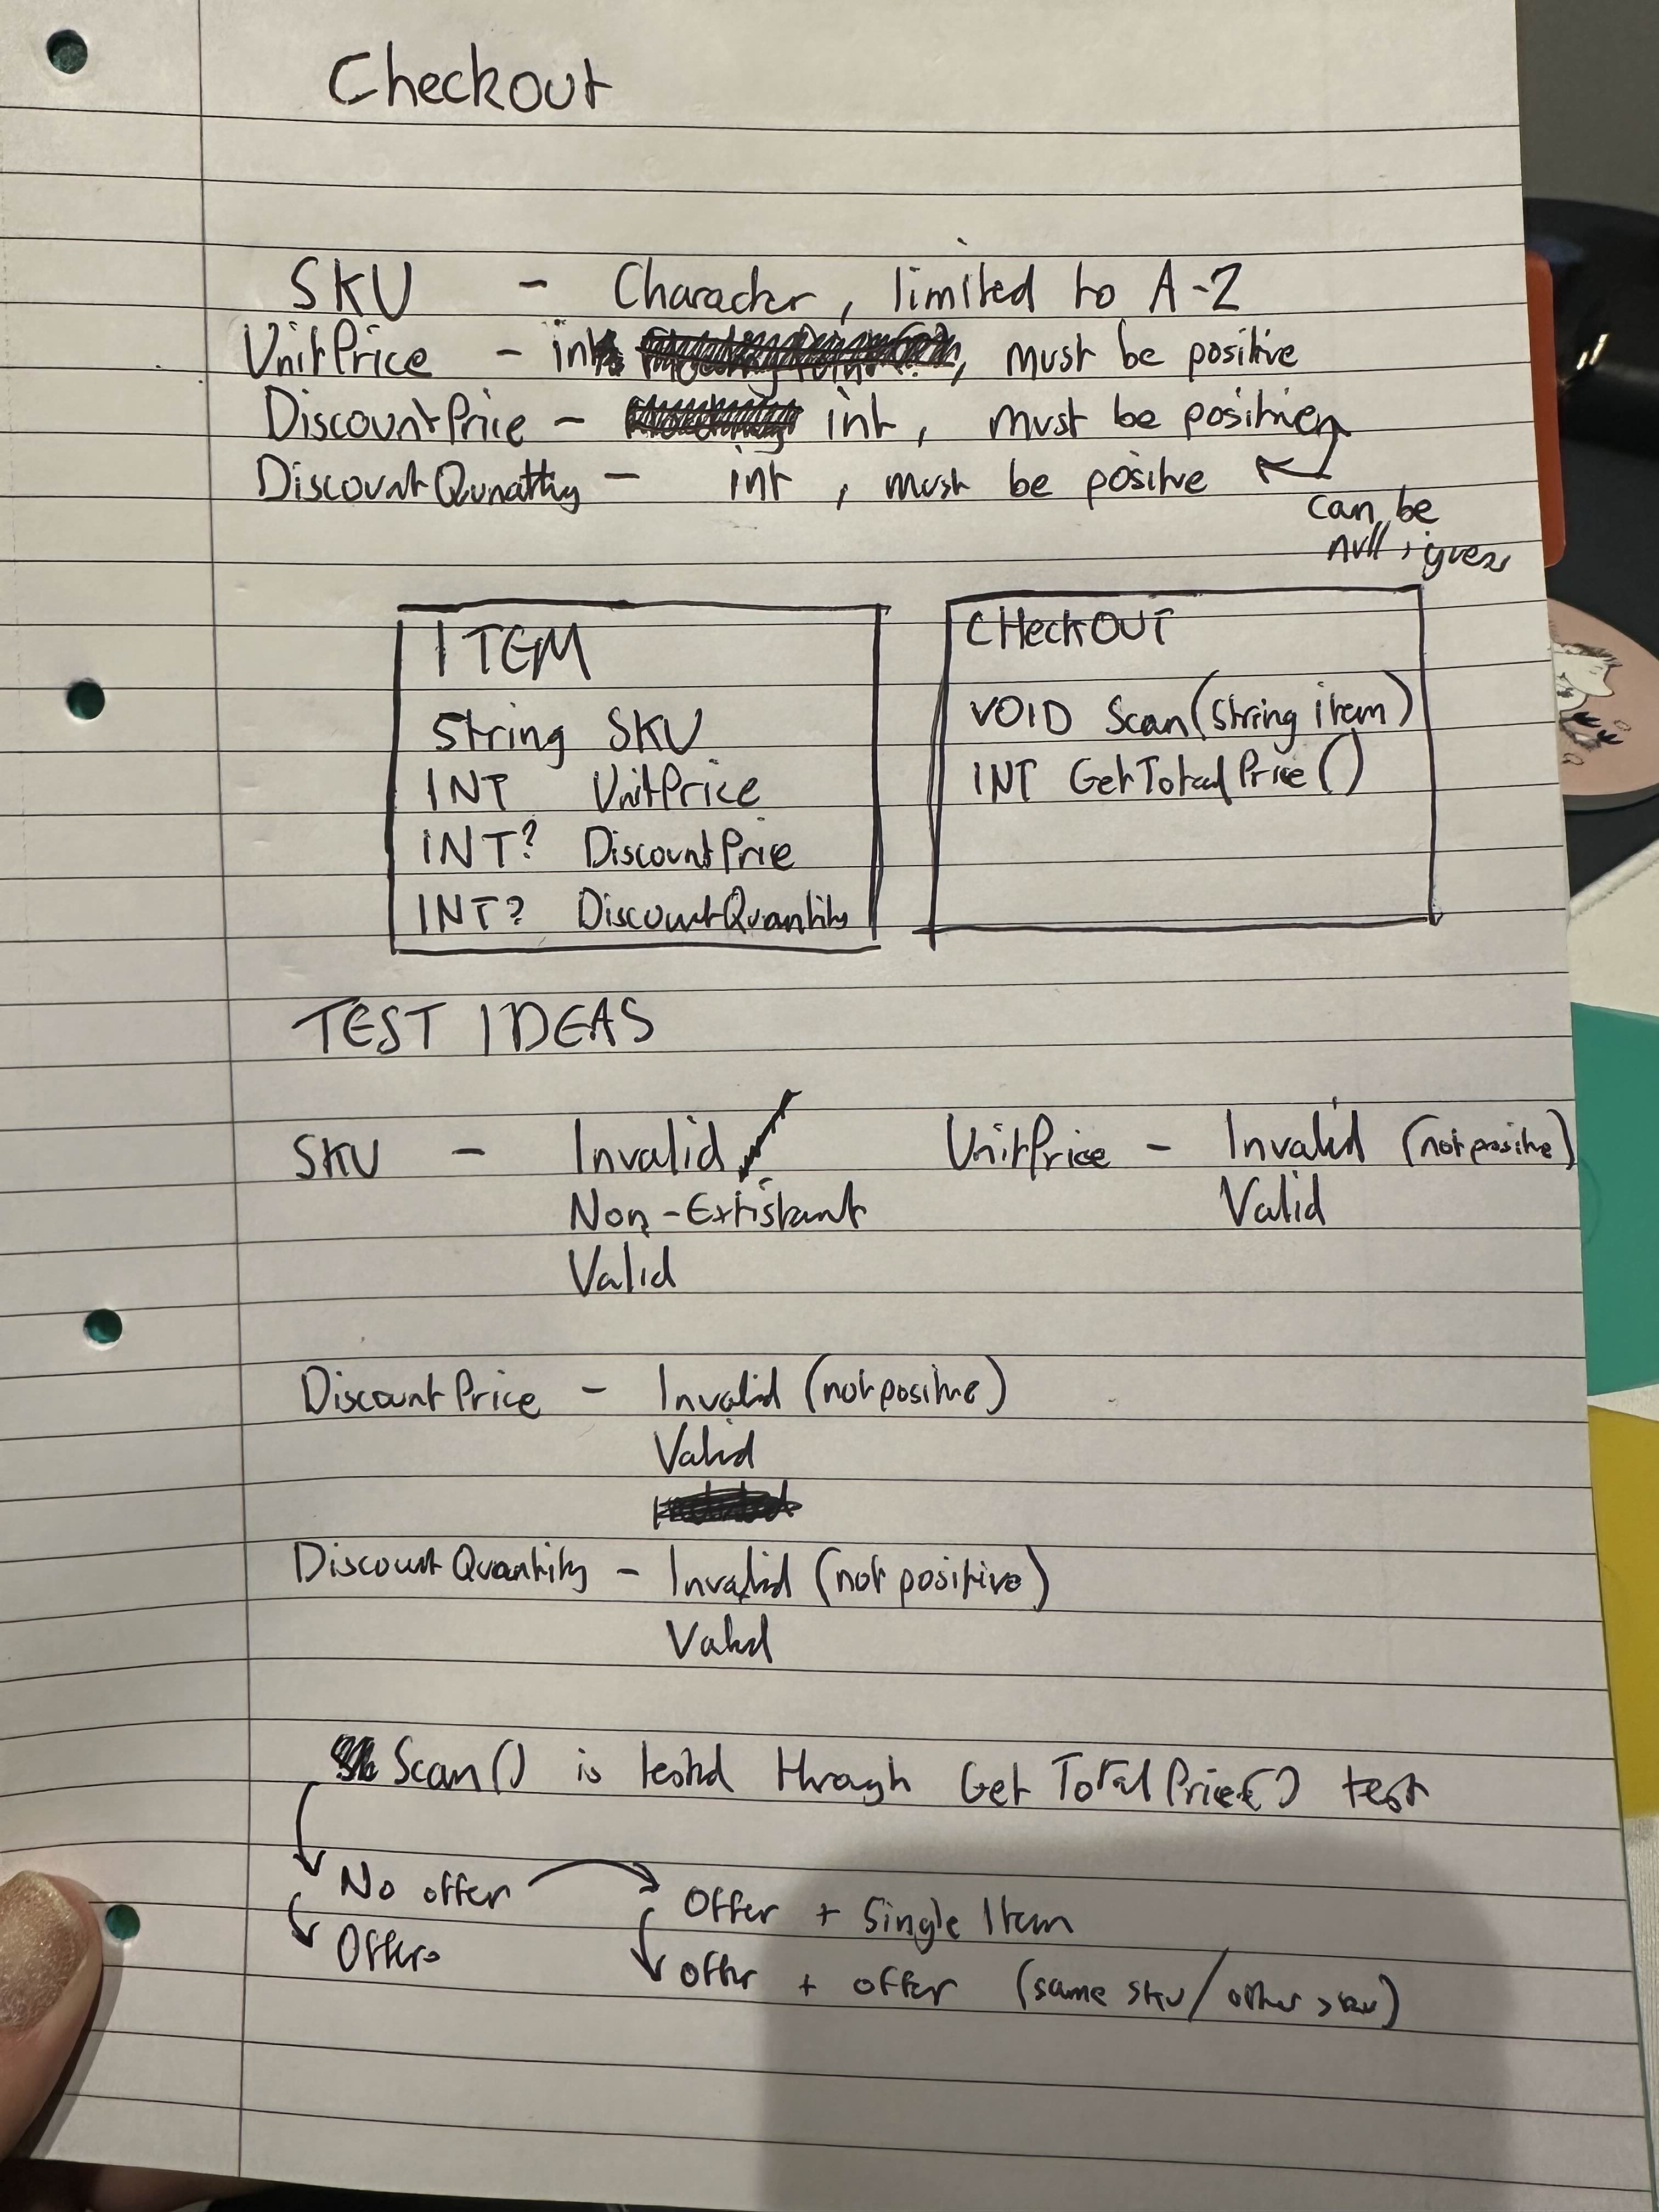 Checkout
SKU - Character, limited to A-Z
UnitPrice - int, must be positive
DiscountPrice - int, must be positive
DiscountQunattiy - int, must be positive
can be
null, i guess
ITEM
String SKU
INT UnitPrice
INT? DiscountPrice
INT? DiscountQuantity
CHeckOUT
VOID Scan(String item)
INT GetTotalPrice()
TEST IDEAS
SKU - Invalid
Non-Extistant
Valid
UnitPrice - Invalid (not positive)
Valid
DiscountPrice - Invalid (not positive)
Valid
DiscountQuantity - Invalid (not positive)
Valid
Scan() is tested through GetTotalPrice() test
No offer
Offers
Offer + Single Item
offer + offer (same sku/other sku)